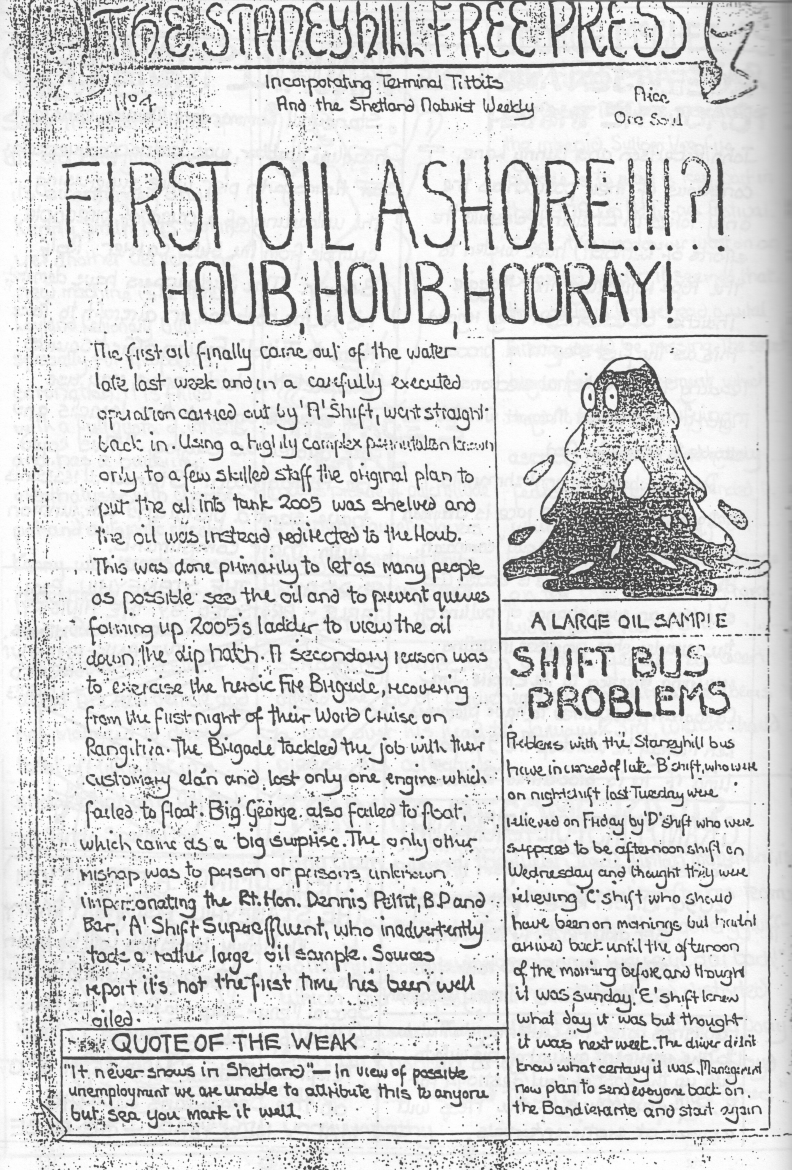 THE STANEYHILL FREE PRESS
Nº4
Incorporating Terminal Titbits
And the Shetland Naturist Weekly
Price
One Soul
FIRST OIL ASHORE!!!?!
HOUB, HOUB, HOORAY!
The first oil finally came out of the water
late last week and in a carefully executed
operation carried out by 'A' Shift, went straight
back in. Using a highly complex permutation known
only to a few skilled staff the original plan to
put the oil into tank 2005 was shelved and
the oil was instead redirected to the Houb.
This was done primarily to let as many people
as possible see the oil and to prevent queues
forming up 2005's ladder to view the oil
down the dip hatch. A secondary reason was
to exercise the heroic Fire Brigade, recovering
from the first night of their World Cruise on
Rangitira. The Brigade tackled the job with their
customary elan and lost only one engine which
failed to float. Big George also failed to float,
which came as a big surprise. The only other
mishap was to person or persons unknown
impersonating the Rt. Hon. Dennis B.P and
Bar, 'A' Shift Supereffluent, who inadvertently
took a rather large oil sample. Sources
report it's not the first time he's been well
oiled.
A LARGE OIL SAMPLE
SHIFT BUS
PROBLEMS
Problems with the Staneyhill bus
have increased of late. 'B' shift, who were
on nightshift last Tuesday were
relieved on Friday by 'D' shift who were
supposed to be afternoon shift on
Wednesday and thought they were
relieving 'C' shift who should
have been on mornings but hadn't
arrived back until the afternoon
of the morning before and thought
it was sunday. 'E' shift knew
what day it was but thought
it was next week. The driver didn't
know what century it was. Management
now plan to send everyone back on
the Bandierante and start again
QUOTE OF THE WEAK
"It never snows in Shetland" — In view of possible
unemployment we are unable to attribute this to anyone
but, sea you mark it well.